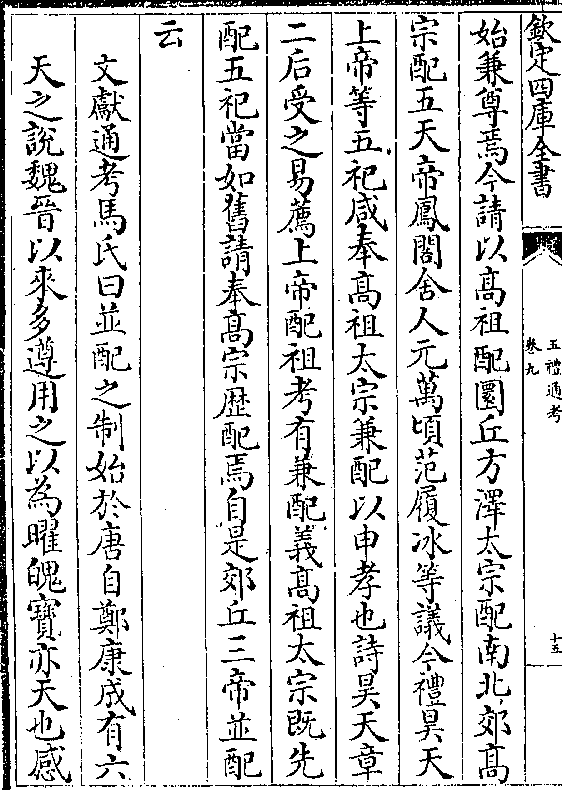 欽定四庫全書
五禮通考
卷九
十五
始兼尊焉今請以髙祖配圜丘方澤太宗配南北郊髙
宗配五天帝鳳閣舍人元萬頃范履冰等議今禮昊天
上帝等五祀咸奉髙祖太宗兼配以申孝也詩昊天章
二后受之易薦上帝配祖考有兼配義髙祖太宗既先
配五祀當如舊請奉髙宗歴配焉自是郊丘三帝並配
云
文獻通考馬氏曰並配之制始於唐自鄭康成有六
天之說魏晉以來多遵用之以為曜魄寶亦天也感